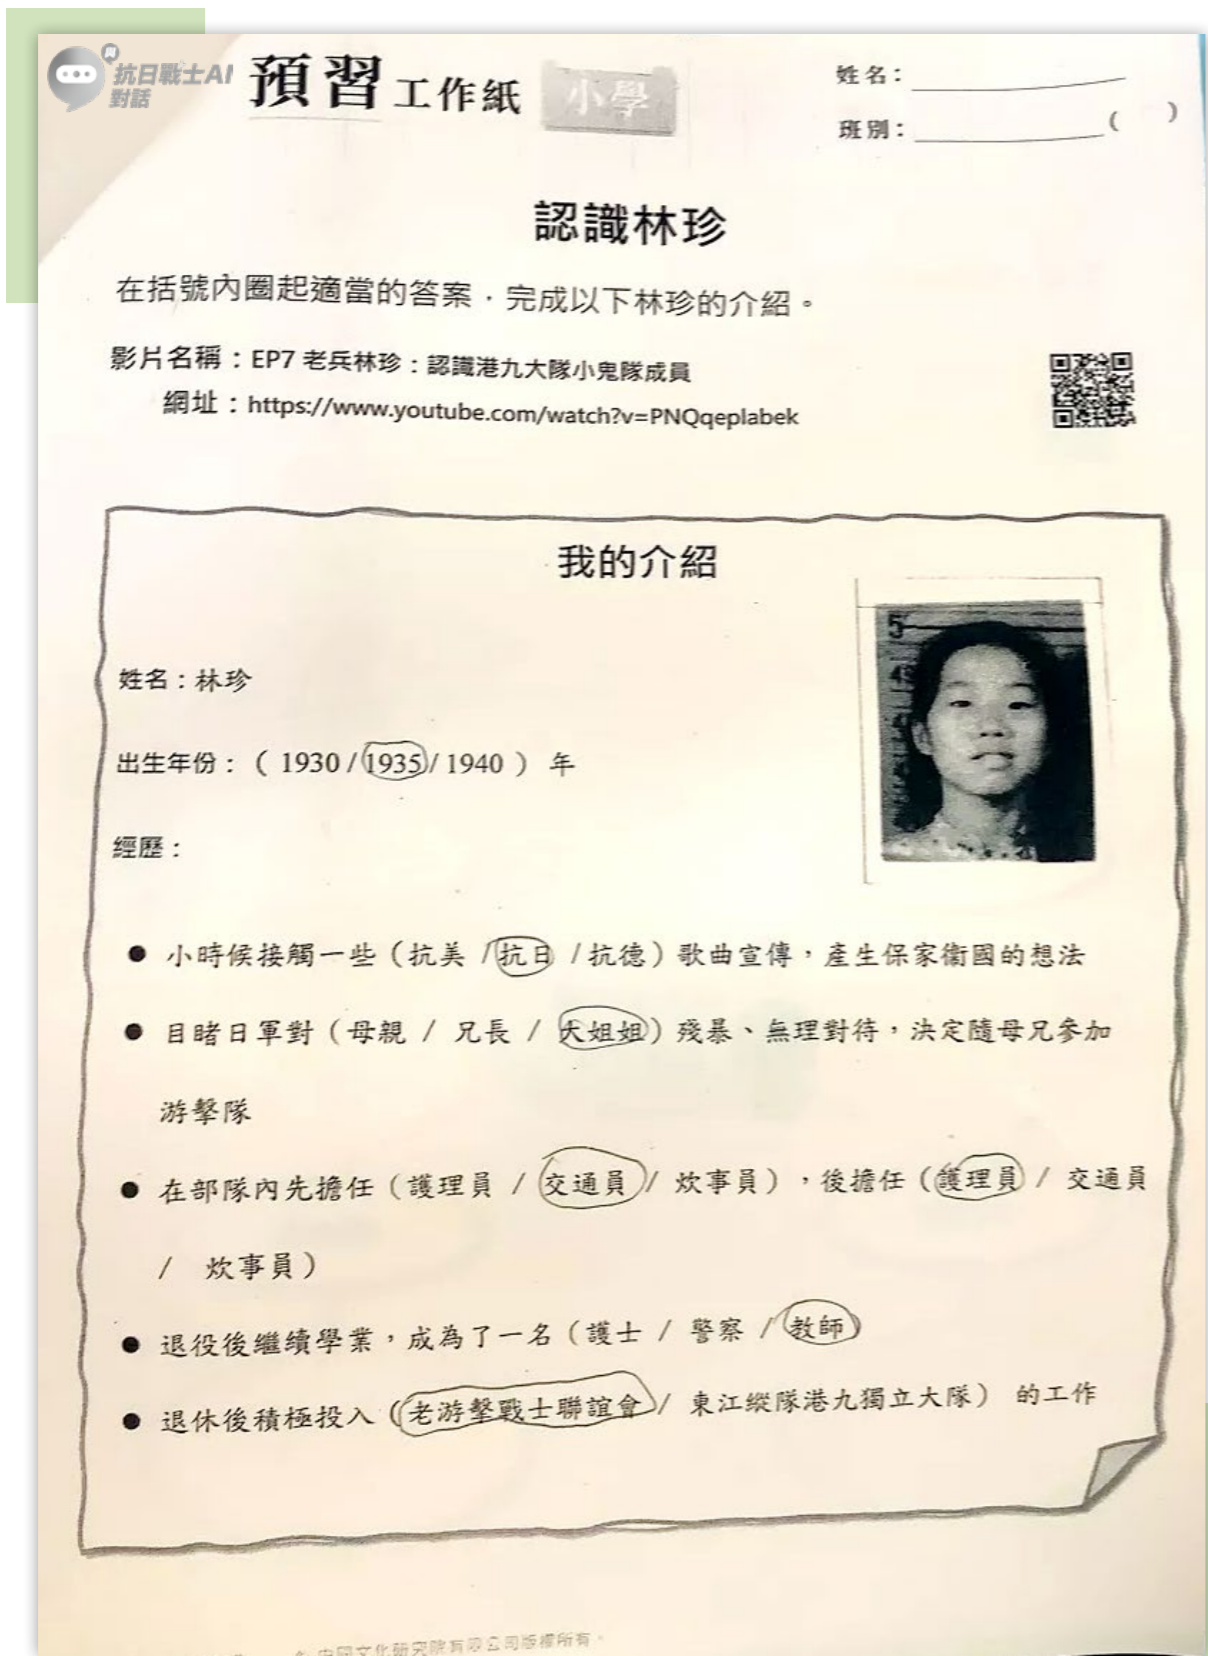 與
抗日戰士AI
對話
預習工作紙 小學
姓名：
班別： （ ）
認識林珍
在括號內圈起適當的答案，完成以下林珍的介紹。
影片名稱：EP7 老兵林珍：認識港九大隊小鬼隊成員
網址：https://www.youtube.com/watch?v=PNQqeplabek
我的介紹
姓名：林珍
出生年份：（ 1930 / 1935 / 1940 ） 年
經歷：
● 小時候接觸一些（抗美 / 抗日 / 抗德）歌曲宣傳，產生保家衞國的想法
● 目睹日軍對（母親 / 兄長 / 大姐姐）殘暴、無理對待，決定隨母兄參加
游擊隊
● 在部隊內先擔任（護理員 / 交通員 / 炊事員），後擔任（護理員 / 交通員
/ 炊事員）
● 退役後繼續學業，成為了一名（護士 / 警察 / 教師）
● 退休後積極投入（老游擊戰士聯誼會 / 東江縱隊港九獨立大隊） 的工作
中國文化研究院有限公司版權所有。